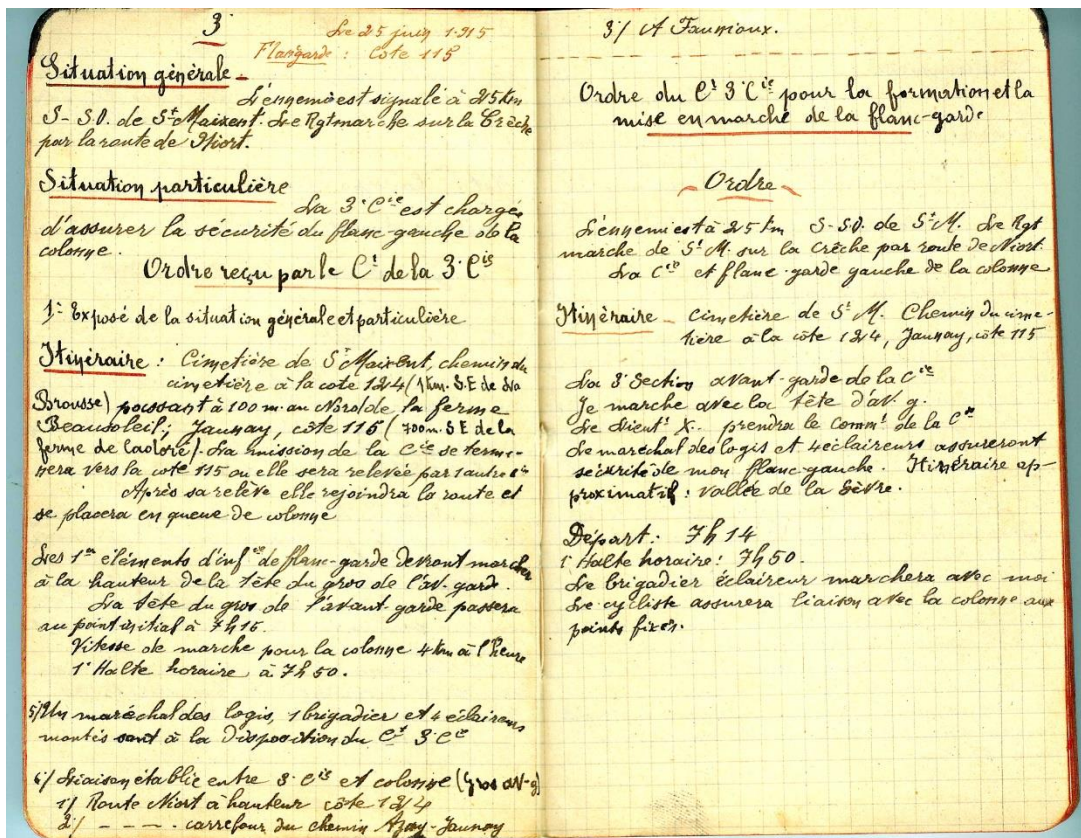 3
Le 25 juin 1915
Flangarde : Cote 115
Situation générale -
L'ennemi est signalé à 25 km
S-S.O. de St Maixent. Le Rgt marche sur la Crèche
par la route de Niort.
Situation particulière
La 3e Cie est chargée
d'assurer la sécurité du flanc-gauche de la
colonne.
Ordre reçu par le Ct de la 3e Cie
1° Exposé de la situation générale et particulière
Itinéraire : Cimetière de St Maixent, chemin du
cimetière à la cote 124 (1 km. S.E de La
Brousse) passant à 100 m. au Nord de la ferme
Beausoleil; Jaunay, côte 115 (700 m. S E de la
ferme de ). La mission de la Cie se termi-
nera vers la cote 115 ou elle sera relevée par 1 autre Cie
Après sa relève elle rejoindra la route et
se placera en queue de colonne
Les 1ers éléments d'infie de flanc-garde devront marcher
à la hauteur de la tête du gros de l'av. gard.
La tête du gros de l'avant-garde passera
au point initial à 7h15.
Vitesse de marche pour la colonne 4 km à l'heure
1e Halte horaire à 7h50.
5/ Un maréchal des logis, 1 brigadier et 4 éclaireurs
montés sont à la disposition du Ct 3e Cie
6/ Liaison établie entre 3e Cie et colonne (Gros av-g)
1/ Route Niort à hauteur côte 124
2/ - - - - . carrefour du chemin Azay-Jaunay
3/ A Faumoux.
Ordre du Ct 3e Cie pour la formation et la
mise en marche de la flanc-garde
Ordre
L'ennemi est à 25 km S-S.O. de St M. Le Rgt
marche de St M. sur la Crèche par route de Niort.
La Cie et flanc-garde gauche de la colonne
Itinéraire - cimetière de St M. Chemin du cime-
tière à la côte 124, Jaunay, côte 115
La 3e Section avant-garde de la Cie
Je marche avec la tête d'av. g.
Le Lieutt X. prendra le Commt de la Cie
Le maréchal des logis et 4 éclaireurs assureront
sécurité de mon flanc-gauche. Itinéraire ap-
proximatif : vallée de la Sèvre.
Départ : 7h14
1e Halte horaire : 7h50.
Le brigadier éclaireur marchera avec moi
Le cycliste assurera liaison avec la colonne aux
points fixés.